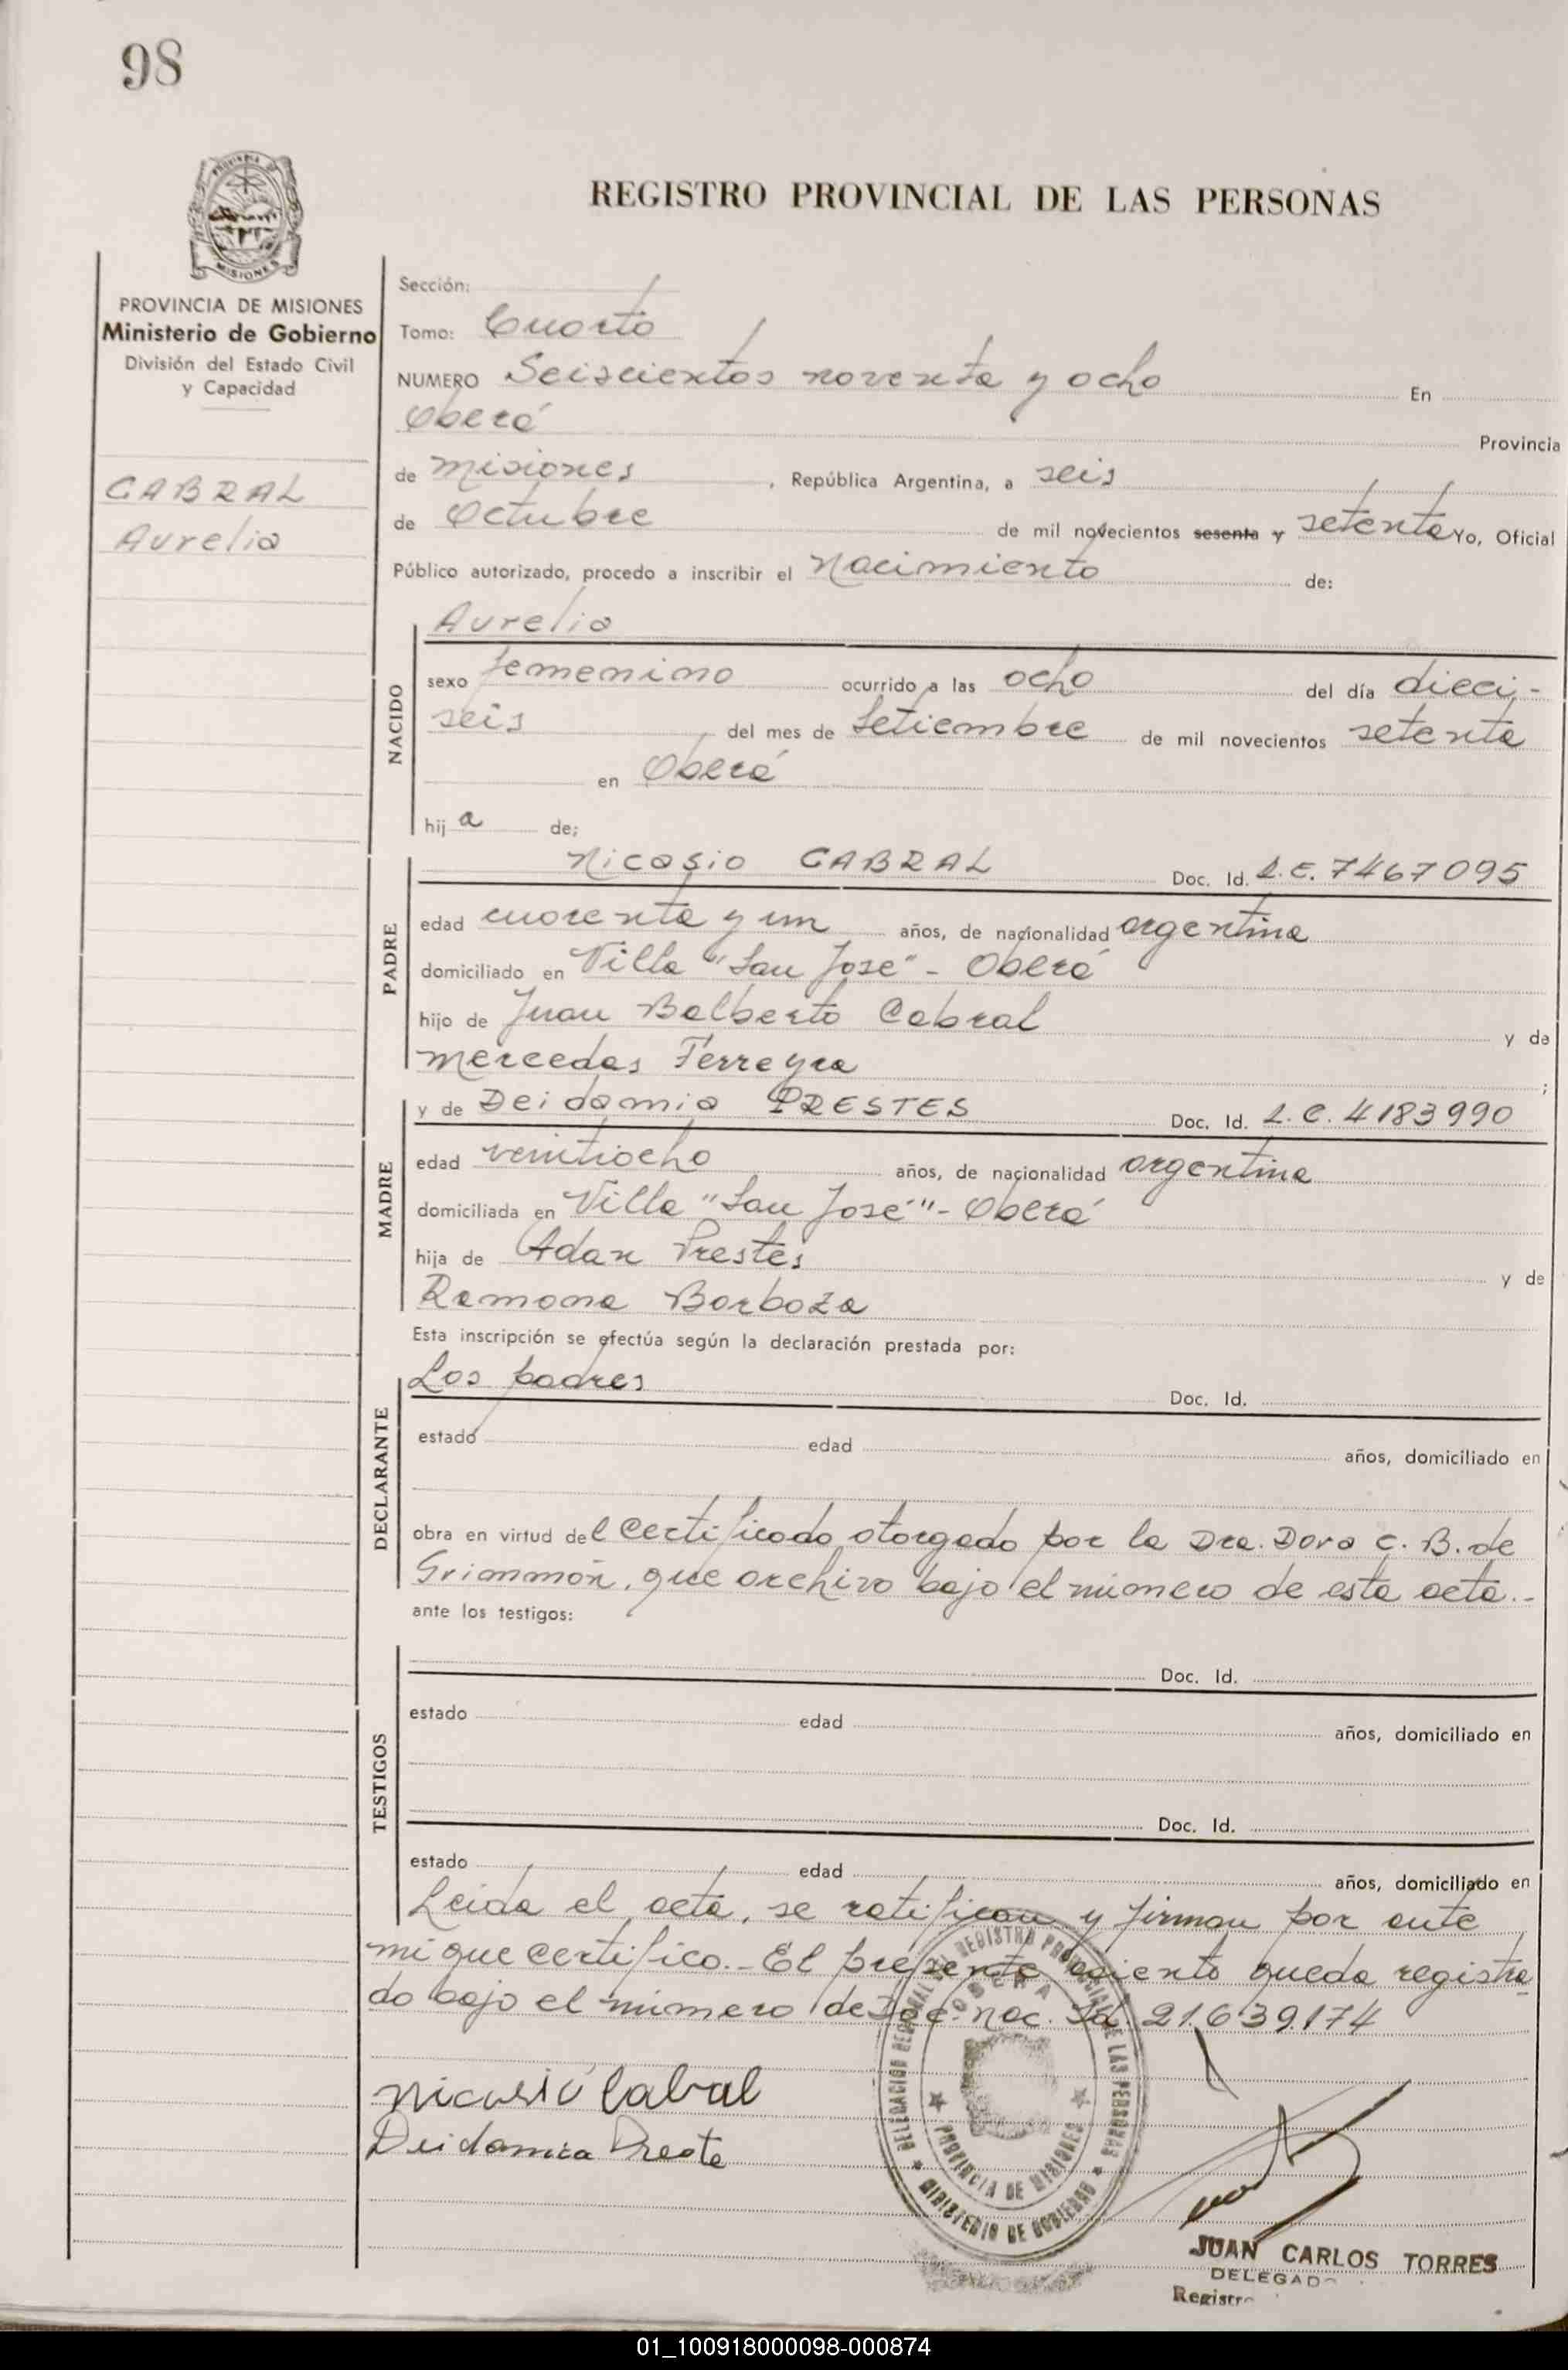 98
PROVINCIA DE
MISIONES
REGISTRO PROVINCIAL DE LAS PERSONAS
PROVINCIA DE MISIONES
Ministerio de Gobierno
División del Estado Civil
y Capacidad
CABRAL
Aurelia
Sección:
Tomo: Cuarto
NUMERO Seiscientos noventa y ocho En
Oberá Provincia
de Misiones, República Argentina, a seis
de Octubre de mil novecientos sesenta y setenta Yo, Oficial
Público autorizado, procedo a inscribir el Nacimiento de:
NACIDO
Aurelia
sexo femenino ocurrido a las ocho del día dieci-
seis del mes de Setiembre de mil novecientos setenta
en Oberá
hija de;
PADRE
Nicasio CABRAL Doc. Id. L.E. 7467095
edad cuarenta y un años, de nacionalidad argentina
domiciliado en Villa "San José" - Oberá
hijo de Juan Balberto Cabral y de
Mercedes Ferreyra ;
MADRE
y de Deidamia PRESTES Doc. Id. L.C. 4183990
edad veintiocho años, de nacionalidad argentina
domiciliada en Villa "San José" - Oberá
hija de Adan Prestes y de
Ramona Borboza
Esta inscripción se efectúa según la declaración prestada por:
DECLARANTE
Los padres Doc. Id.
estado edad años, domiciliado en
obra en virtud del Certificado otorgado por la Dra. Dora C. B. de
Grimmón, que archivo bajo el número de esta acta.-
ante los testigos:
TESTIGOS
Doc. Id.
estado edad años, domiciliado en
Doc. Id.
estado edad años, domiciliado en
Leida el acta, se ratifican y firman por ante
mi que certifico.- El presente asiento queda registra
do bajo el número de Doc. Nac. Id. 21.639.174
DELEGACION REGIONAL DEL REGISTRO PROVINCIAL DE LAS PERSONAS
OBERA
PROVINCIA DE MISIONES
MINISTERIO DE GOBIERNO
Nicasio Cabral
Deidamia Preste
JUAN CARLOS TORRES
DELEGADO
Registro
01_100918000098-000874